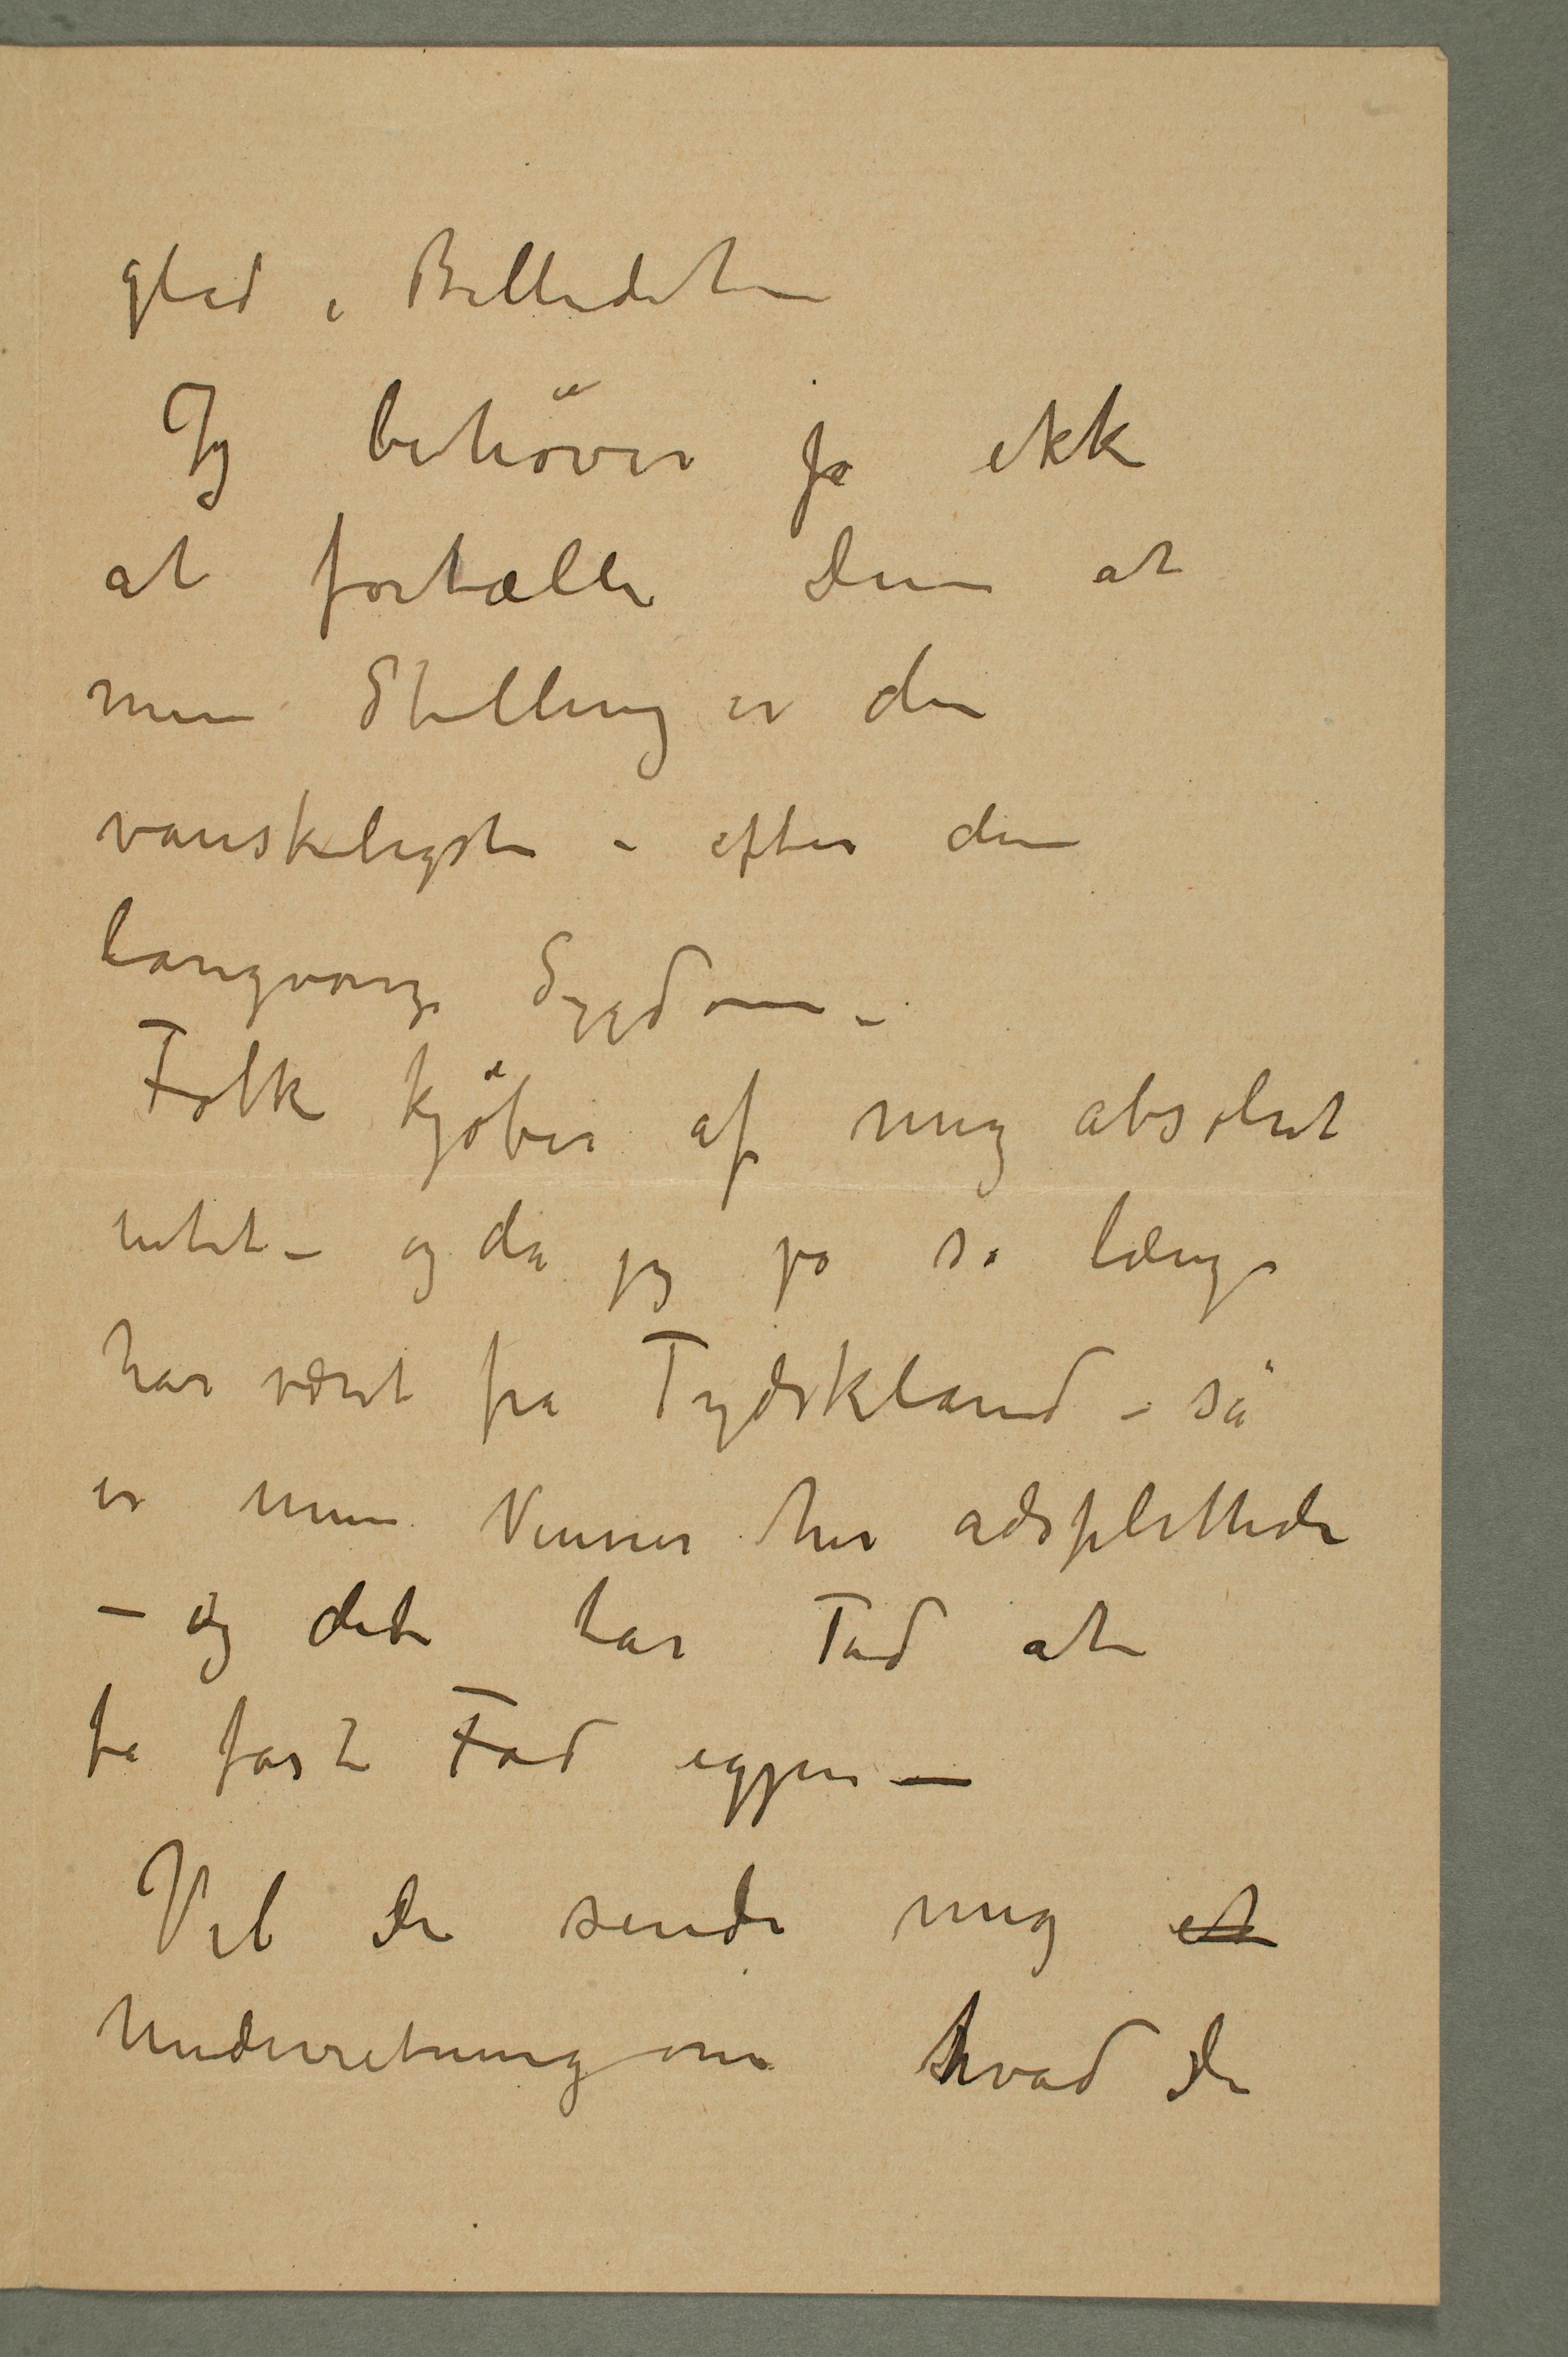 glad i Billedet
Jeg behöver jo ikke
at fortælle Dem at
min Stilling er den
vanskeligste – efter den
langvarige Sygdom –
Folk kjöber af mig absolut
intet – og da jeg jo så længe
har været fra Tydskland – så
er mine Venner her adsplittede
– og det tar Tid at
få fast Fod igjen –
Vil De sende mig et
Underretning om hvad De